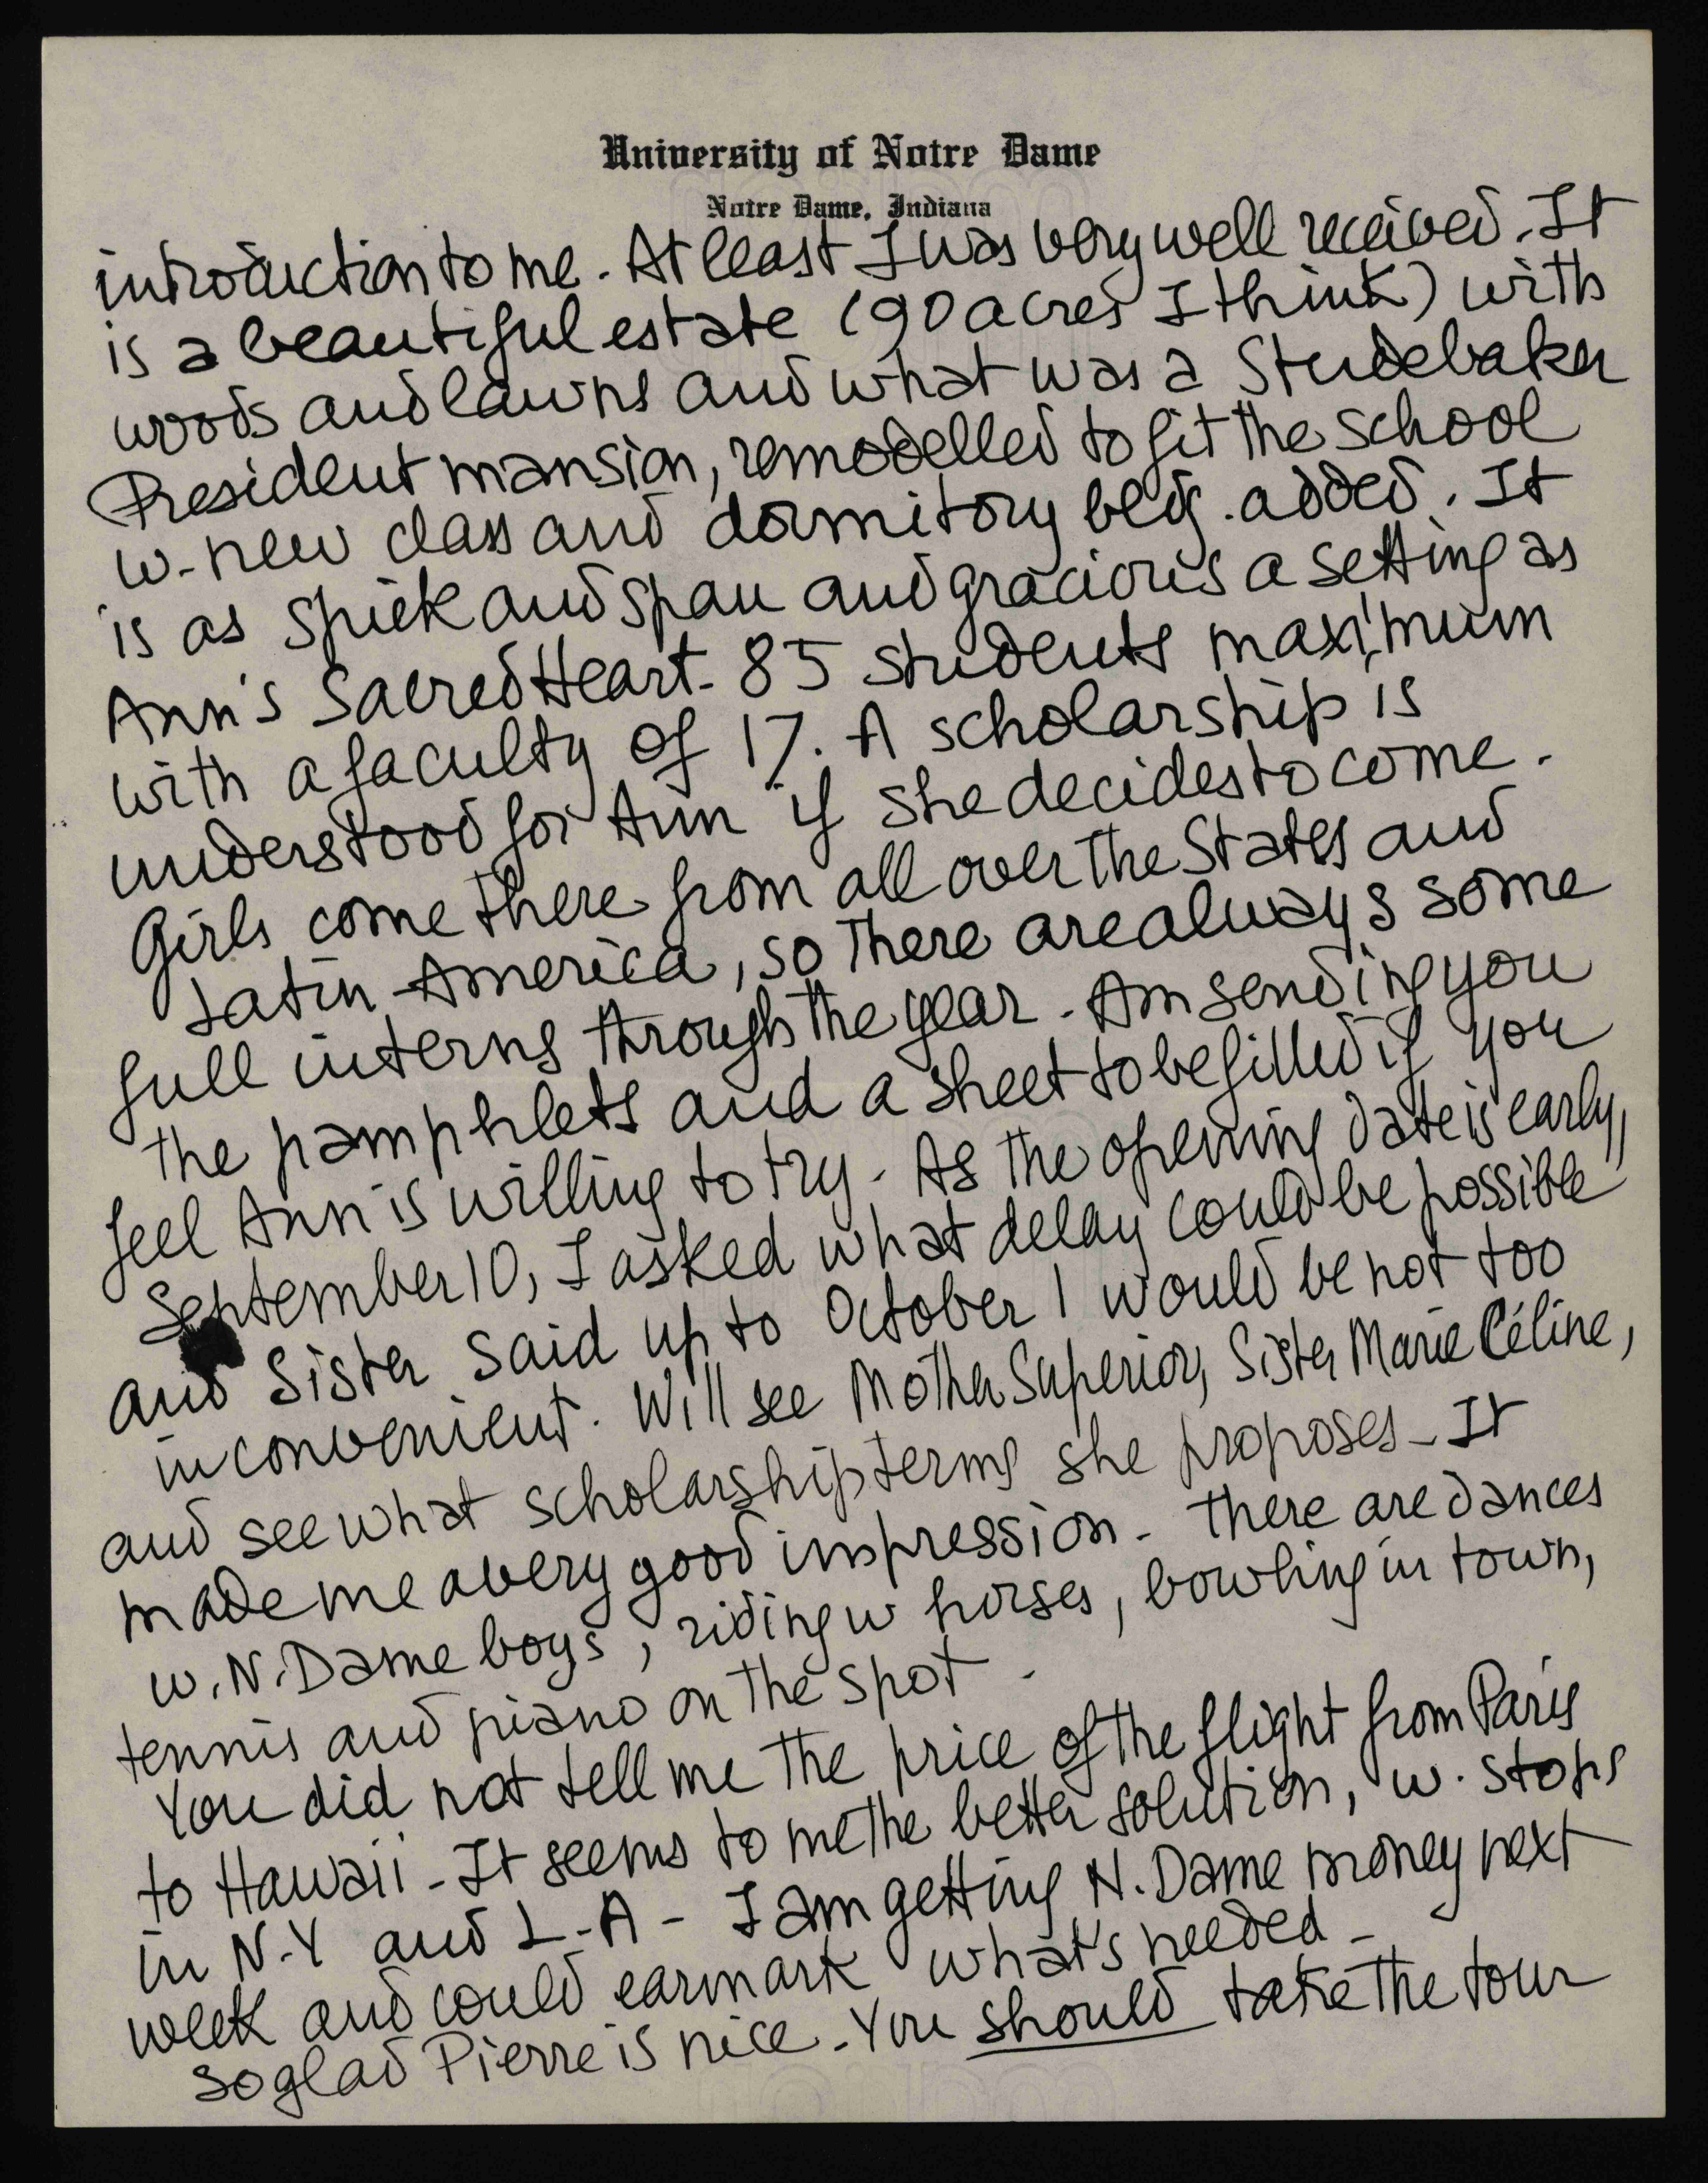 University of Notre Dame
Notre Dame, Indiana
introduction to me. At least I was very well received. It
is a beautiful estate (90 acres I think) with
woods and lawns and what was a Studebaker
President mansion, remodelled to fit the school
w. new class and dormitory bldg. added. It
is as spick and span and gracious a setting as
Ann's Sacred Heart. 85 students maximum
with a faculty of 17. A scholarship is
understood for Ann if she decides to come.
Girls come there from all over the States and
Latin-America, so there are always some
full interns through the year. Am sending you
the pamphlets and a sheet to be filled if you
feel Ann is willing to try. As the opening date is early,
September 10, I asked what delay could be possible
and Sister said up to October 1 would be not too
inconvenient. Will see Mother Superior, Sister Marie Céline,
and see what scholarship terms she proposes. It
made me a very good impression. There are dances
w. N. Dame boys, riding w horses, bowling in town,
tennis and piano on the spot.
You did not tell me the price of the flight from Paris
to Hawaii. It seems to me the better solution, w. stops
in N.Y and L.A. I am getting N. Dame money next
week and could earmark what's needed.
So glad Pierre is nice. You should take the tour